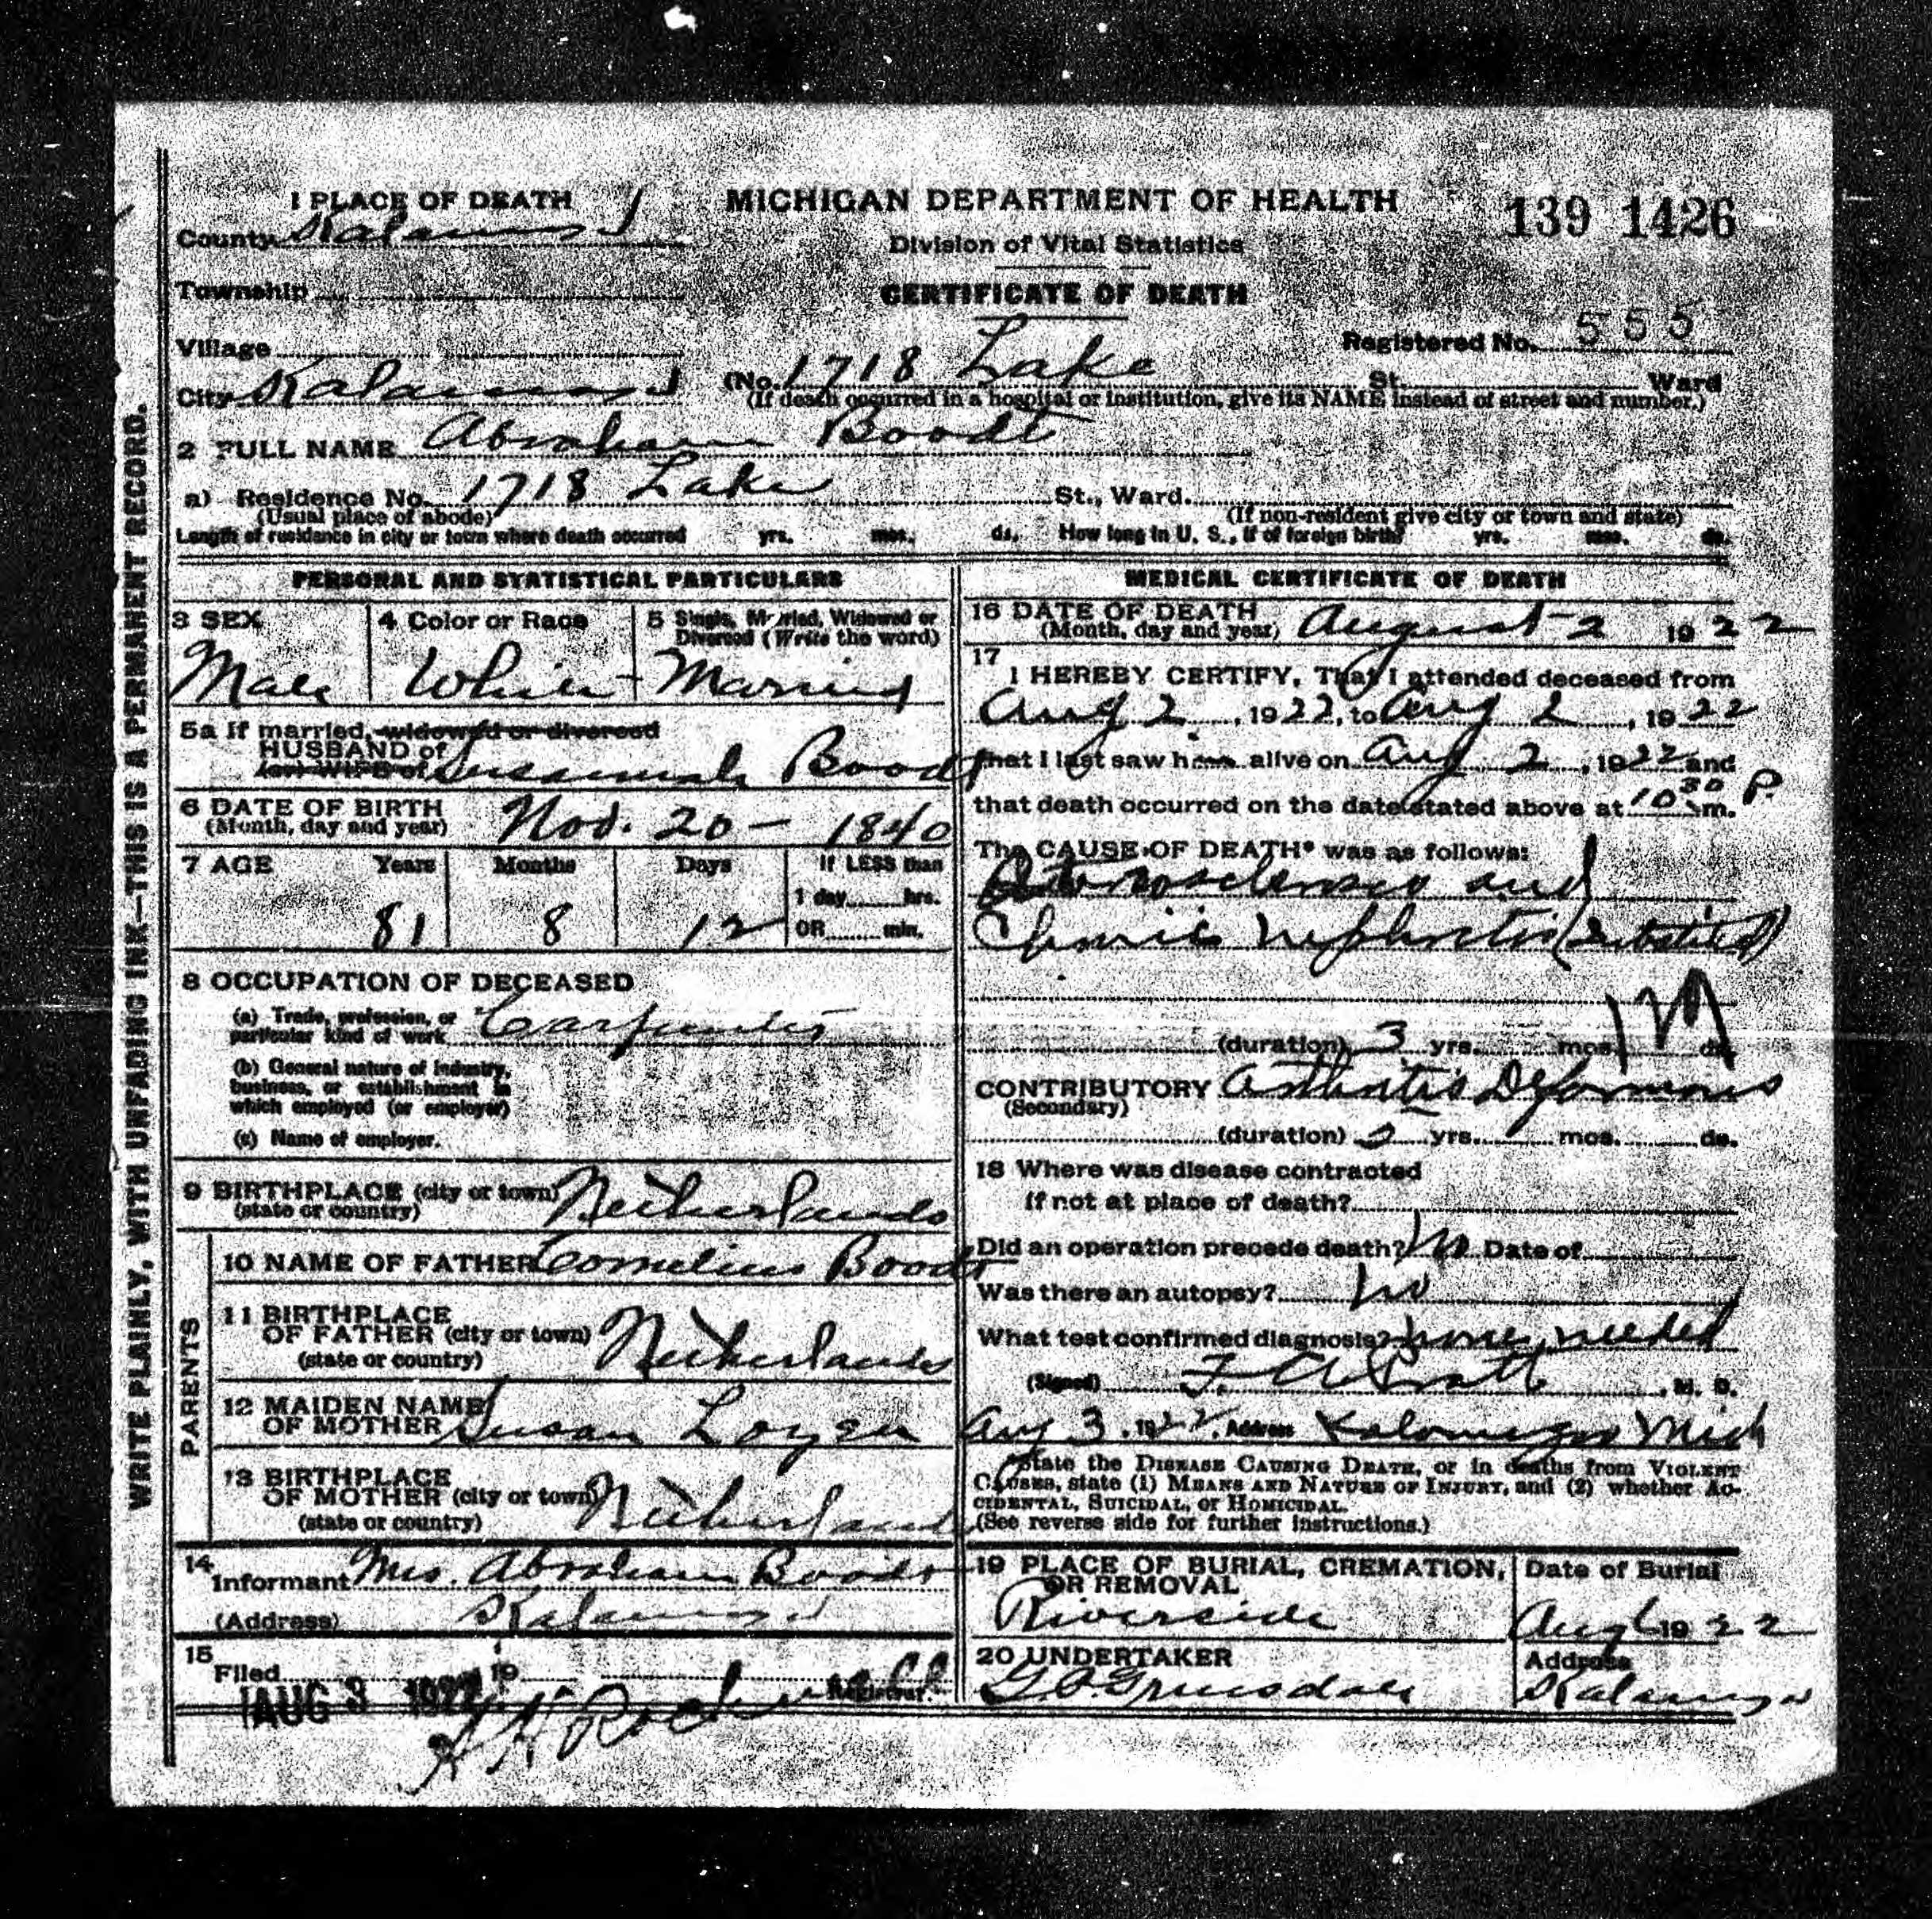 WRITE PLAINLY, WITH UNFADING INK—THIS IS A PERMANENT RECORD.
1 PLACE OF DEATH
County Kalamazoo
Township
Village
City Kalamazoo
MICHIGAN DEPARTMENT OF HEALTH
Division of Vital Statistics
CERTIFICATE OF DEATH
139 1426
Registered No. 555
(No. 1718 Lake St. Ward
(If death occurred in a hospital or institution, give its NAME instead of street and number.)
2 FULL NAME Abraham Boodt
a) Residence No. 1718 Lake St., Ward.
(Usual place of abode) (If non-resident give city or town and state)
Length of residence in city or town where death occurred yrs. mos. ds. How long in U. S., if of foreign birth? yrs. mos. ds.
PERSONAL AND STATISTICAL PARTICULARS
3 SEX
Male
4 Color or Race
White
5 Single, Married, Widowed or
Divorced (Write the word)
Married
5a If married, widowed or divorced
HUSBAND of Susannah Boodt
(or) WIFE of
6 DATE OF BIRTH
(Month, day and year) Nov. 20 - 1840
7 AGE Years Months Days If LESS than
1 day hrs.
81 8 12 OR min.
8 OCCUPATION OF DECEASED
(a) Trade, profession, or
particular kind of work Carpenter
(b) General nature of industry,
business, or establishment in
which employed (or employer)
(c) Name of employer.
9 BIRTHPLACE (city or town)
(state or country) Netherlands
PARENTS
10 NAME OF FATHER Cornelius Boodt
11 BIRTHPLACE
OF FATHER (city or town) Netherlands
(state or country)
12 MAIDEN NAME
OF MOTHER Susan
13 BIRTHPLACE
OF MOTHER (city or town) Netherlands
(state or country)
14
Informant Mrs. Abraham Boodt
(Address) Kalamazoo
15
Filed 19
AUG 3 1922
Registrar.
MEDICAL CERTIFICATE OF DEATH
16 DATE OF DEATH
(Month, day and year) August 2 1922
17
I HEREBY CERTIFY, That I attended deceased from
Aug 2, 1922, to Aug 2, 1922
that I last saw him alive on Aug 2, 1922 and
that death occurred on the date stated above at 10 30 P. m.
The CAUSE OF DEATH* was as follows:
Arteriosclerosis and
Chronic Nephritis (Interstitial)
(duration) 3 yrs. mos. ds.
CONTRIBUTORY Arthritis Deformans
(Secondary)
(duration) yrs. mos. ds.
18 Where was disease contracted
if not at place of death?
Did an operation precede death? No Date of
Was there an autopsy? no
What test confirmed diagnosis? none needed
(Signed) F. A. Pratt, M. D.
Aug 3, 1922, Address Kalamazoo Mich
*State the DISEASE CAUSING DEATH, or in deaths from VIOLENT
CAUSES, state (1) MEANS AND NATURE OF INJURY, and (2) whether AC-
CIDENTAL, SUICIDAL, or HOMICIDAL.
(See reverse side for further instructions.)
19 PLACE OF BURIAL, CREMATION,
OR REMOVAL
Riverside
Date of Burial
Aug 1922
20 UNDERTAKER
Address
Kalamazoo